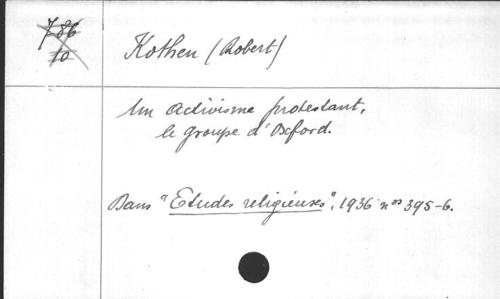 786
10
Kothen (Robert)
Un activisme protestant,
le groupe d'Oxford.
Dans "Etudes religieuses", 1936 nos 395-6.